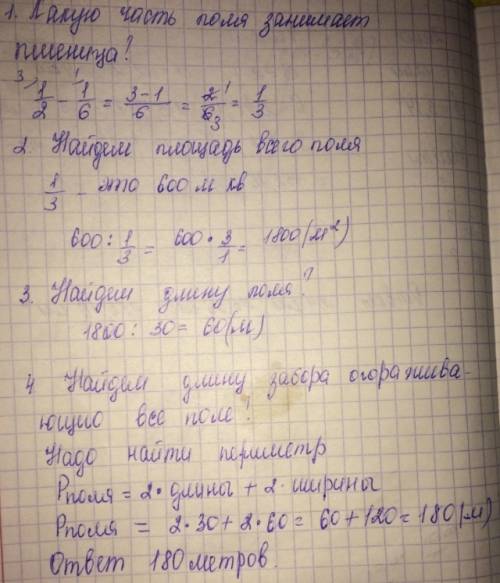 1. Какую часть поля занимает
пшеница?
3) 1/2 - 1) 1/6 = 3-1/6 = 2/6 1 3 = 1/3
2. Найдем площадь всего поля
1/3 - это 600 м кв
600 : 1/3 = 600 · 3/1 = 1800 (м²)
3. Найдем длину поля?
1800 : 30 = 60 (м)
4 Найдем длину забора огоражива-
ющию все поле!
Надо найти периметр
Pполя = 2 · длины + 2 · ширины
Pполя = 2·30 + 2·60 = 60 + 120 = 180 (м)
Ответ 180 метров.